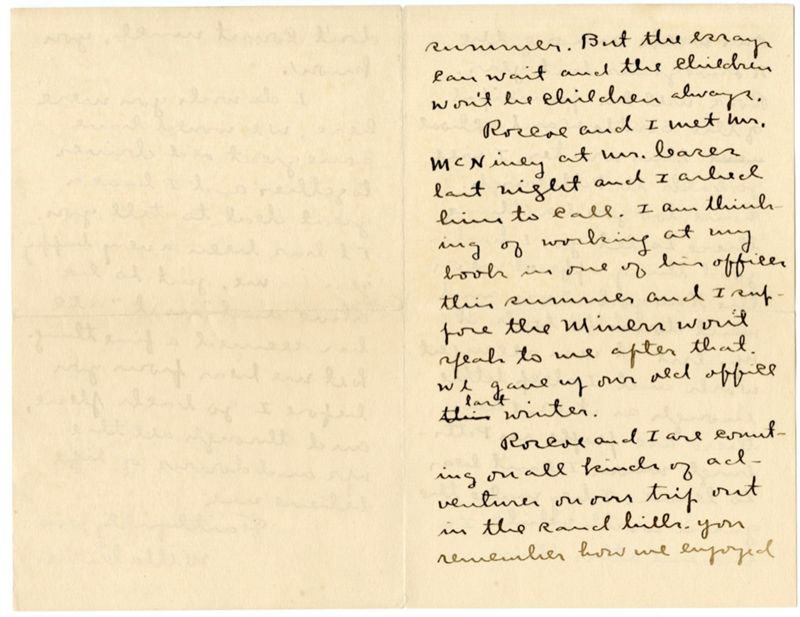 summer. But the essays
can wait and the children
won't be children always.
Roscoe and I met Mr.
McNiney at Mr. Cases
last night and I asked
him to call. I am think-
ing of working at my
book in one of his offices
this summer and I sup-
pose the Miners won't
speak to me after that.
We gave up our old office
last
this winter.
Roscoe and I are count-
ing on all kinds of ad-
ventures on our trip out
in the sand hills. You
remember how we enjoyed